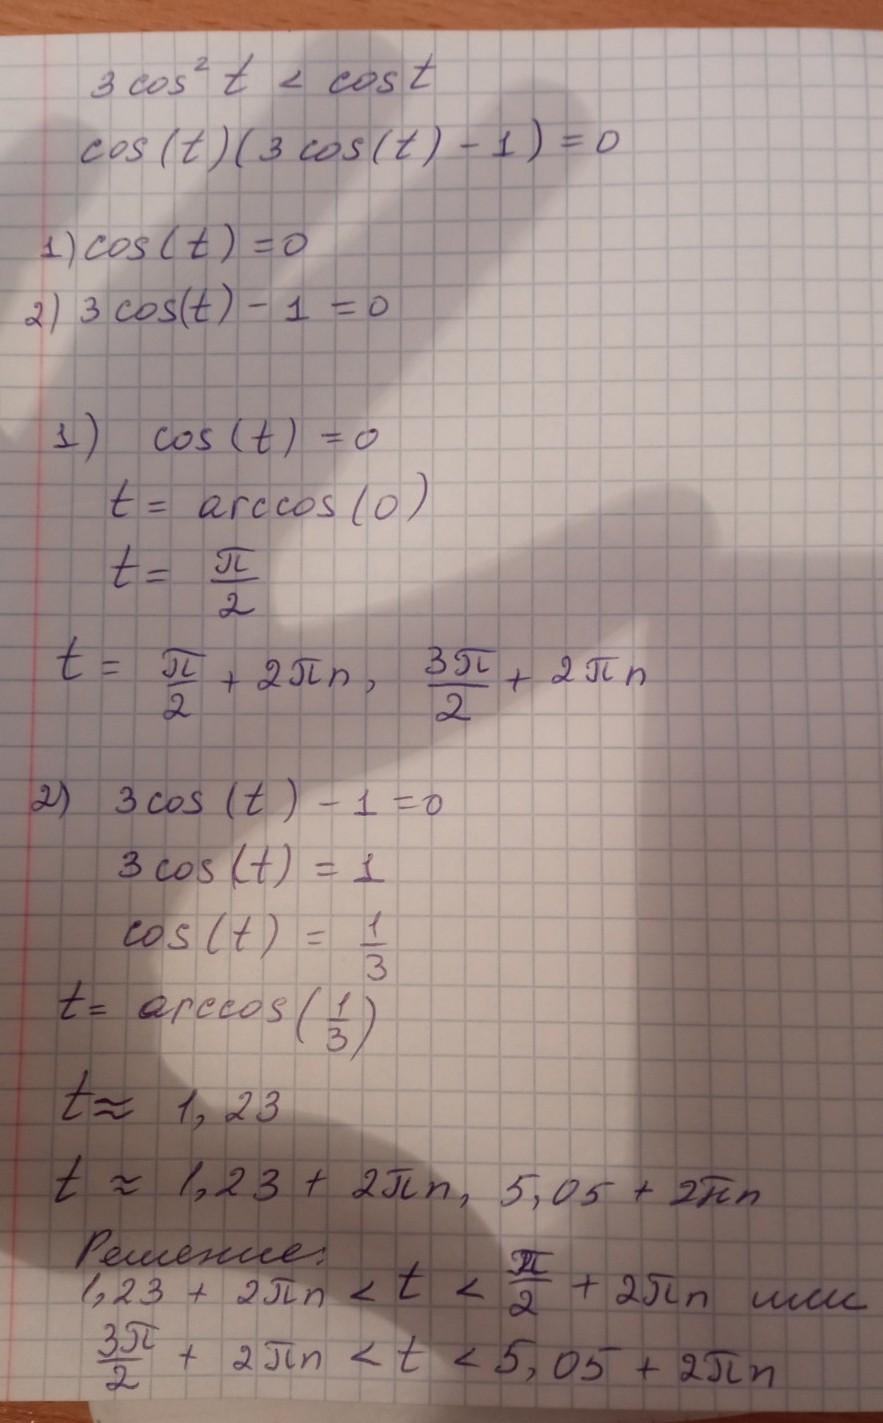 3 cos² t < cos t
cos(t)(3 cos(t) - 1) = 0
1) cos(t) = 0
2) 3 cos(t) - 1 = 0
1) cos(t) = 0
t = arccos(0)
t = π/2
t = π/2 + 2πn, 3π/2 + 2πn
2) 3cos(t) - 1 = 0
3cos(t) = 1
cos(t) = 1/3
t = arccos(1/3)
t ≈ 1,23
t ≈ 1,23 + 2πn, 5,05 + 2πn
Решение:
1,23 + 2πn < t < π/2 + 2πn или
3π/2 + 2πn < t < 5,05 + 2πn